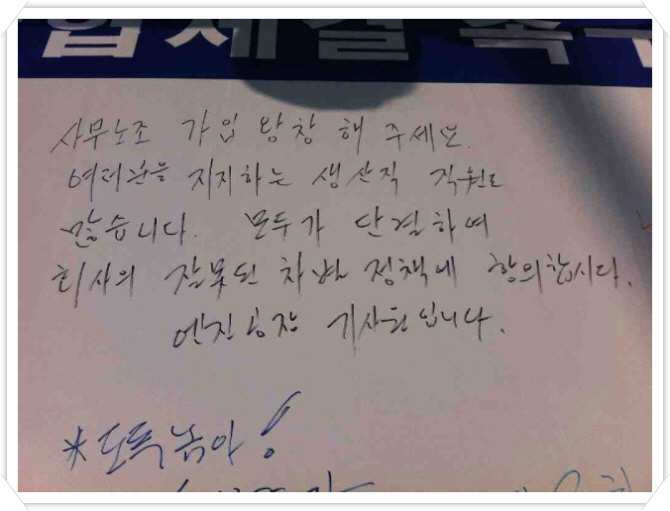 협체결 촉구
사무노조 가입 왕창 해 주세요.
여러분을 지지하는 생산직 직원도
많습니다. 모두가 단결하여
회사의 잘못된 차별 정책에 항의합시다.
엔진공장 기사원입니다.
*도둑놈아!